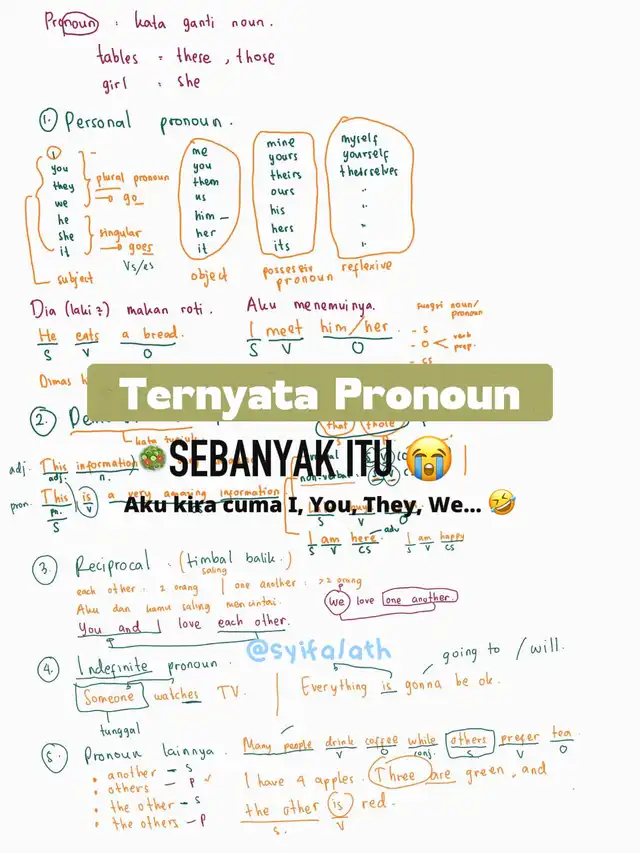 Pronoun : kata ganti noun.
tables = these, those
girl = she
1. Personal pronoun.
I
you
they
we
he
she
it
plural pronoun
→ go
singular
→ goes
Vs/es
subject
me
you
them
us
him
her
it
object
mine
yours
theirs
ours
his
hers
its
possessiv pronoun
myself
yourself
theirselves
"
"
"
"
reflexive
Dia (laki2) makan roti.
He eats a bread.
S V O
Aku menemuinya.
I meet him/her.
S V O
fungsi noun/pronoun
- S
- O < verb prep.
- CS
Dimas
Ternyata Pronoun
SEBANYAK ITU 😭
Aku kira cuma I, You, They, We... 🤣
2.
that those
adj. This information
adj. n.
pron. This is a very amazing information
pn. V
S
non-verbal
I am here. adv
S V CS
I am happy
S V CS
3. Reciprocal (timbal balik.)
saling
each other : 2 orang | one another : >2 orang
Aku dan kamu saling mencintai.
You and I love each other.
We love one another.
@syifalath
4. Indefinite pronoun.
Someone watches TV.
tunggal
going to / will.
Everything is gonna be ok.
5. Pronoun lainnya.
• another – S
• others – P ✓
• the other – S
• the others – P
Many people drink coffee while others prefer tea
V O conj. S V O
I have 4 apples. Three are green, and
the other is red.
S. V